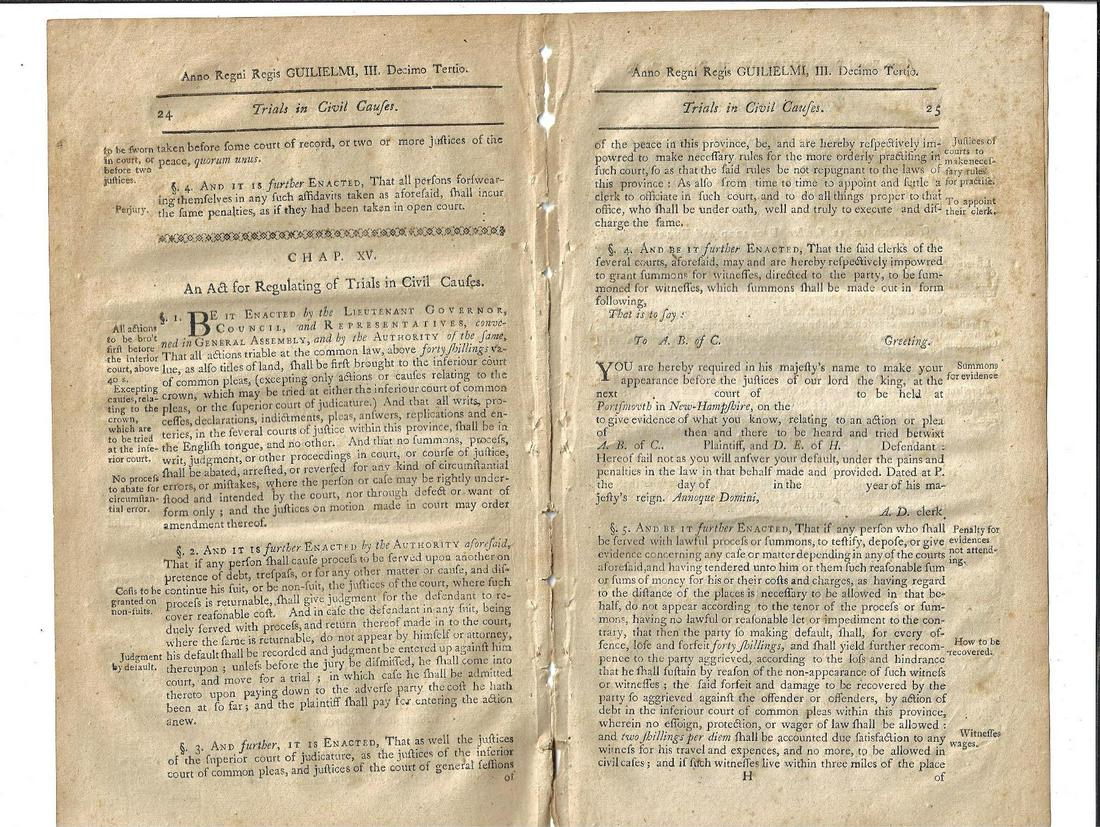 Anno Regni Regis GUILIELMI, III. Decimo Tertio.
24 Trials in Civil Cauſes.
to be ſworn
in court, or
before two
juſtices.
taken before ſome court of record, or two or more juſtices of the
peace, quorum unus.
§. 4. AND IT IS further ENACTED, That all perſons forſwear-
ing themſelves in any ſuch affidavits taken as aforeſaid, ſhall incur
the ſame penalties, as if they had been taken in open court.
Perjury.
CHAP. XV.
An Act for Regulating of Trials in Civil Cauſes.
§. 1. BE IT ENACTED by the LIEUTENANT GOVERNOR,
COUNCIL, and REPRESENTATIVES, conve-
ned in GENERAL ASSEMBLY, and by the AUTHORITY of the ſame,
That all actions triable at the common law, above forty ſhillings va-
lue, as alſo titles of land, ſhall be firſt brought to the inferiour court
of common pleas, (excepting only actions or cauſes relating to the
crown, which may be tried at either the inferiour court of common
pleas, or the ſuperior court of judicature.) And that all writs, pro-
ceſſes, declarations, indictments, pleas, anſwers, replications and en-
teries, in the ſeveral courts of juſtice within this province, ſhall be in
the Engliſh tongue, and no other. And that no ſummons, proceſs,
writ, judgment, or other proceedings in court, or courſe of juſtice,
ſhall be abated, arreſted, or reverſed for any kind of circumſtantial
errors, or miſtakes, where the perſon or caſe may be rightly under-
ſtood and intended by the court, nor through defect or want of
form only ; and the juſtices on motion made in court may order
amendment thereof.
All actions
to be bro't
firſt before
the inferior
court, above
40 s.
Excepting
cauſes, rela-
ting to the
crown,
which are
to be tried
at the infe-
rior court.
No proceſs
to abate for
circumſtan-
tial error.
§. 2. AND IT IS further ENACTED by the AUTHORITY aforeſaid,
That if any perſon ſhall cauſe proceſs to be ſerved upon another on
pretence of debt, treſpaſs, or for any other matter or cauſe, and diſ-
continue his ſuit, or be non-ſuit, the juſtices of the court, where ſuch
proceſs is returnable, ſhall give judgment for the defendant to re-
cover reaſonable coſt. And in caſe the defendant in any ſuit, being
duely ſerved with proceſs, and return thereof made in to the court,
where the ſame is returnable, do not appear by himſelf or attorney,
his default ſhall be recorded and judgment be entered up againſt him
thereupon ; unleſs before the jury be diſmiſſed, he ſhall come into
court, and move for a trial ; in which caſe he ſhall be admitted
thereto upon paying down to the adverſe party the coſt he hath
been at ſo far ; and the plaintiff ſhall pay for entering the action
anew.
Coſts to be
granted on
non-ſuits.
Judgment
by default.
§. 3. AND further, IT IS ENACTED, That as well the juſtices
of the ſuperior court of judicature, as the juſtices of the inferior
court of common pleas, and juſtices of the court of general ſeſſions
of
Anno Regni Regis GUILIELMI, III. Decimo Tertio.
Trials in Civil Cauſes. 25
of the peace in this province, be, and are hereby reſpectively im-
powred to make neceſſary rules for the more orderly practiſing in
ſuch court, ſo as that the ſaid rules be not repugnant to the laws of
this province : As alſo from time to time to appoint and ſettle a
clerk to officiate in ſuch court, and to do all things proper to that
office, who ſhall be under oath, well and truly to execute and diſ-
charge the ſame.
Juſtices of
courts to
make neceſ-
ſary rules
for practiſe.
To appoint
their clerk.
§. 4. AND BE IT further ENACTED, That the ſaid clerks of the
ſeveral courts, aforeſaid, may and are hereby reſpectively impowred
to grant ſummons for witneſſes, directed to the party, to be ſum-
moned for witneſſes, which ſummons ſhall be made out in form
following,
That is to ſay :
To A. B. of C. Greeting.
YOU are hereby required in his majeſty's name to make your
appearance before the juſtices of our lord the king, at the
next court of to be held at
Portſmouth in New-Hampſhire, on the
to give evidence of what you know, relating to an action or plea
of then and there to be heard and tried betwixt
A. B. of C. Plaintiff, and D. E. of H. Defendant :
Hereof fail not as you will anſwer your default, under the pains and
penalties in the law in that behalf made and provided. Dated at P.
the day of in the year of his ma-
jeſty's reign. Annoque Domini,
A. D. clerk
Summons
for evidence
§. 5. AND BE IT further ENACTED, That if any perſon who ſhall
be ſerved with lawful proceſs or ſummons, to teſtify, depoſe, or give
evidence concerning any caſe or matter depending in any of the courts
aforeſaid, and having tendered unto him or them ſuch reaſonable ſum
or ſums of money for his or their coſts and charges, as having regard
to the diſtance of the places is neceſſary to be allowed in that be-
half, do not appear according to the tenor of the proceſs or ſum-
mons, having no lawful or reaſonable let or impediment to the con-
trary, that then the party ſo making default, ſhall, for every of-
fence, loſe and forfeit forty ſhillings, and ſhall yield further recom-
pence to the party aggrieved, according to the loſs and hindrance
that he ſhall ſuſtain by reaſon of the non-appearance of ſuch witneſs
or witneſſes ; the ſaid forfeit and damage to be recovered by the
party ſo aggrieved againſt the offender or offenders, by action of
debt in the inferiour court of common pleas within this province,
wherein no eſſoign, protection, or wager of law ſhall be allowed :
and two ſhillings per diem ſhall be accounted due ſatisfaction to any
witneſs for his travel and expences, and no more, to be allowed in
civil caſes ; and if ſuch witneſſes live within three miles of the place
Penalty for
evidences
not attend-
ing.
How to be
recovered.
Witneſſes
wages.
H of